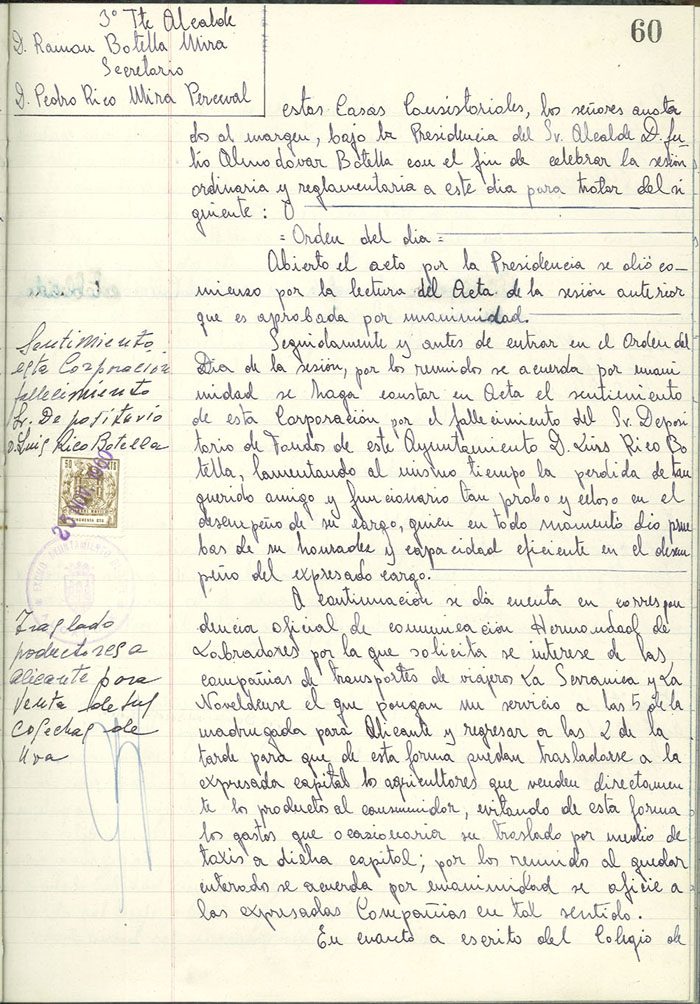 60
3º Tte Alcalde
D. Ramon Botella Mira
Secretario
D. Pedro Rico Mira Perceval
estas Casas Consistoriales, los señores anota
dos al margen, bajo la Presidencia del Sr. Alcalde D. Ju-
lio Almodovar Botella con el fin de celebrar la sesión
ordinaria y reglamentaria a este dia para tratar del si
guiente:
= Orden del dia =
Abierto el acto por la Presidencia se dió co-
mienzo por la lectura del Acta de la sesión anterior
que es aprobada por unanimidad.
Seguidamente y antes de entrar en el Orden del
Dia de la sesión, por los reunidos se acuerda por unani
midad se haga constar en Acta el sentimiento
de esta Corporación por el fallecimiento del Sr. Deposi
tario de Fondos de este Ayuntamiento D. Luis Rico Bo
tella, lamentando al mismo tiempo la perdida de tan
querido amigo y funcionario tan probo y celoso en el
desempeño de su cargo, quien en todo momento dio prue
bas de su honradez y capacidad eficiente en el desem
peño del expresado cargo.
A continuación se dá cuenta en correspon
dencia oficial de comunicación Hermandad de
Labradores por la que solicita se interese de las
compañias de transportes de viajeros La Serranica y La
Noveldense el que pongan un servicio a las 5 de la
madrugada para Alicante y regresar a las 2 de la
tarde para que de esta forma puedan trasladarse a la
expresada capital los agricultores que venden directamen
te los productos al consumidor, evitando de esta forma
los gastos que ocasionaria su traslado por medio de
taxis a dicha capital; por los reunidos al quedar
enterados se acuerda por unanimidad se oficie a
las expresadas Compañias en tal sentido.
En cuanto a escrito del Colegio de
Sentimiento
esta Corporación
fallecimiento
Sr. Depositario
D. Luis Rico Botella
50
25 NOV. 1960
AYUNTAMIENTO
Traslado
productores a
Alicante para
Venta de sus
Cosechas de
Uva